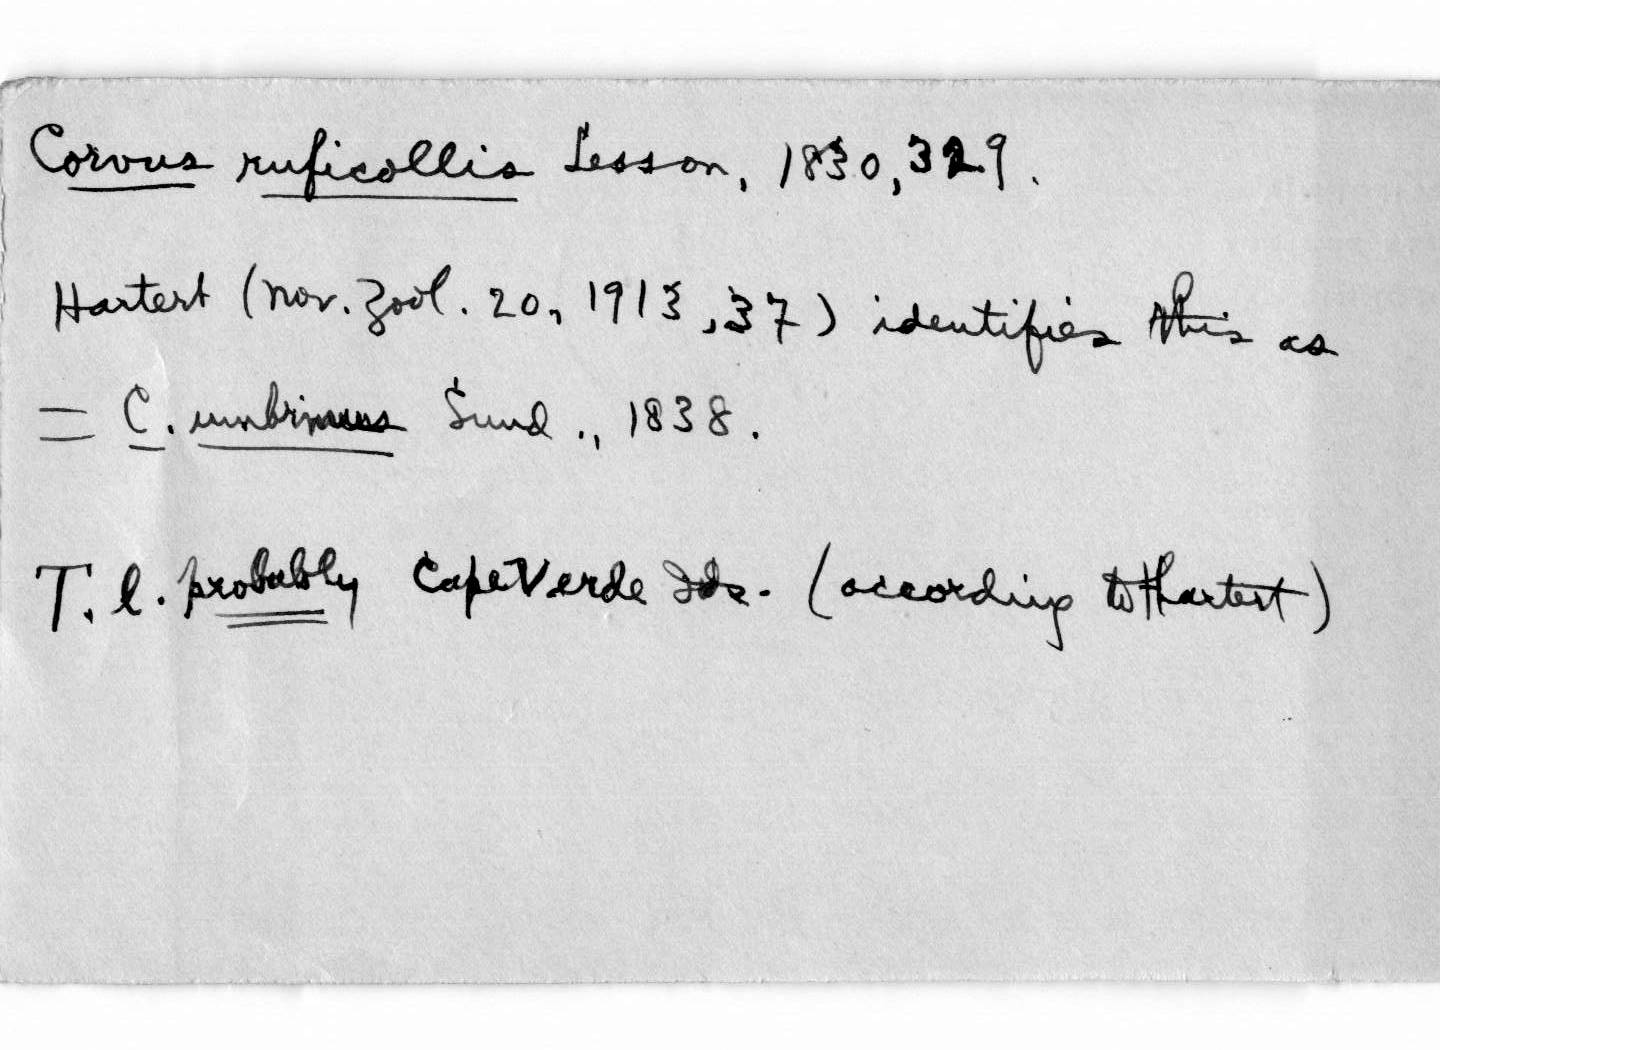 Corvus ruficollis Lesson, 1830, 329.
Hartert (Nov. Zool. 20, 1913, 37) identifies this as
= C. umbrinus Sund., 1838.
T. l. probably Cape Verde Ids. (according to Hartert)